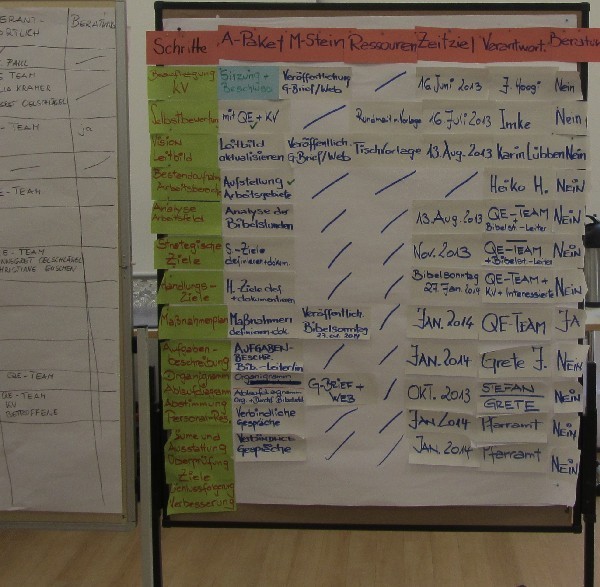 ORTLICH
BERATUNG
PAUL
TEAM
KRAMER
TEAM
ja
E-TEAM
E-TEAM
CHRISTIANE
QE-TEAM
QE-TEAM
KV
BETROFFENE
Schritte A-Paket M-Stein Ressourcen Zeitziel Verantwort. Beratung
Beauftragung
KV
Sitzung-
Beschluss
Veröffentlichung
G-Brief/Web
16. Juni 2013
Nein
Selbstbewertung
mit QE + KV
16 Juli 2013
Imke
Nein
Vision
Leitbild
Leitbild
aktualisieren
Veröffentlich.
G-Brief/Web
Tischvorlage
13. Aug. 2013
Karin Lübben
Nein
Aufstellung
Arbeitsgebiete
Heiko H.
NEIN
Analyse
Arbeitsfeld
Analyse der
Bibelstunden
13. Aug. 2013
QE-TEAM
Bibelst.-Leiter
NEIN
Strategische
Ziele
S.-Ziele
Nov. 2013
QE-TEAM
+ Bibelst.-Leit
NEIN
Handlungs-
Ziele
H.-Ziele def.
+ dokumentieren
Bibelsonntag
27. Jan. 2014
QE-TEAM +
KV + Interessierte
NEIN
Maßnahmenplan
Maßnahmen
Veröffentlich.
Bibelsonntag
27.01.2014
JAN. 2014
QE-TEAM
JA
Aufgaben-
beschreibung
AUFGABEN-
BESCHR.
Bib.-Leiter/in
JAN. 2014
Grete J.
NEIN
Organigramm
Ablaufdiagramm
Abstimmung
Organigramm
Ablaufdiagramm
G-BRIEF +
WEB
OKT. 2013
STEFAN
GRETE
NEIN
Verbindliche
Gespräche
JAN 2014
Pfarramt
NEIN
Räume und
Ausstattung
Gespräche
JAN. 2014
Pfarramt
NEIN
Überprüfung
Ziele
Schlussfolgerung
Verbesserung